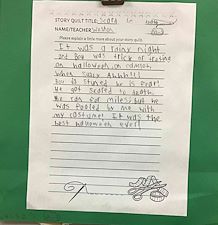 STORY QUILT TITLE: Scary
NAME/TEACHER: Weston
Please explain a little more about your story quilt.
It was a rainy night
and Boy was trick or treting
on halloween, on
When Suddy Ahhhh!!
Boy is stuned he is
He got scared to death.
He ran miles, but he
was fooled by me with
my costume! It was the
best halloween ever!